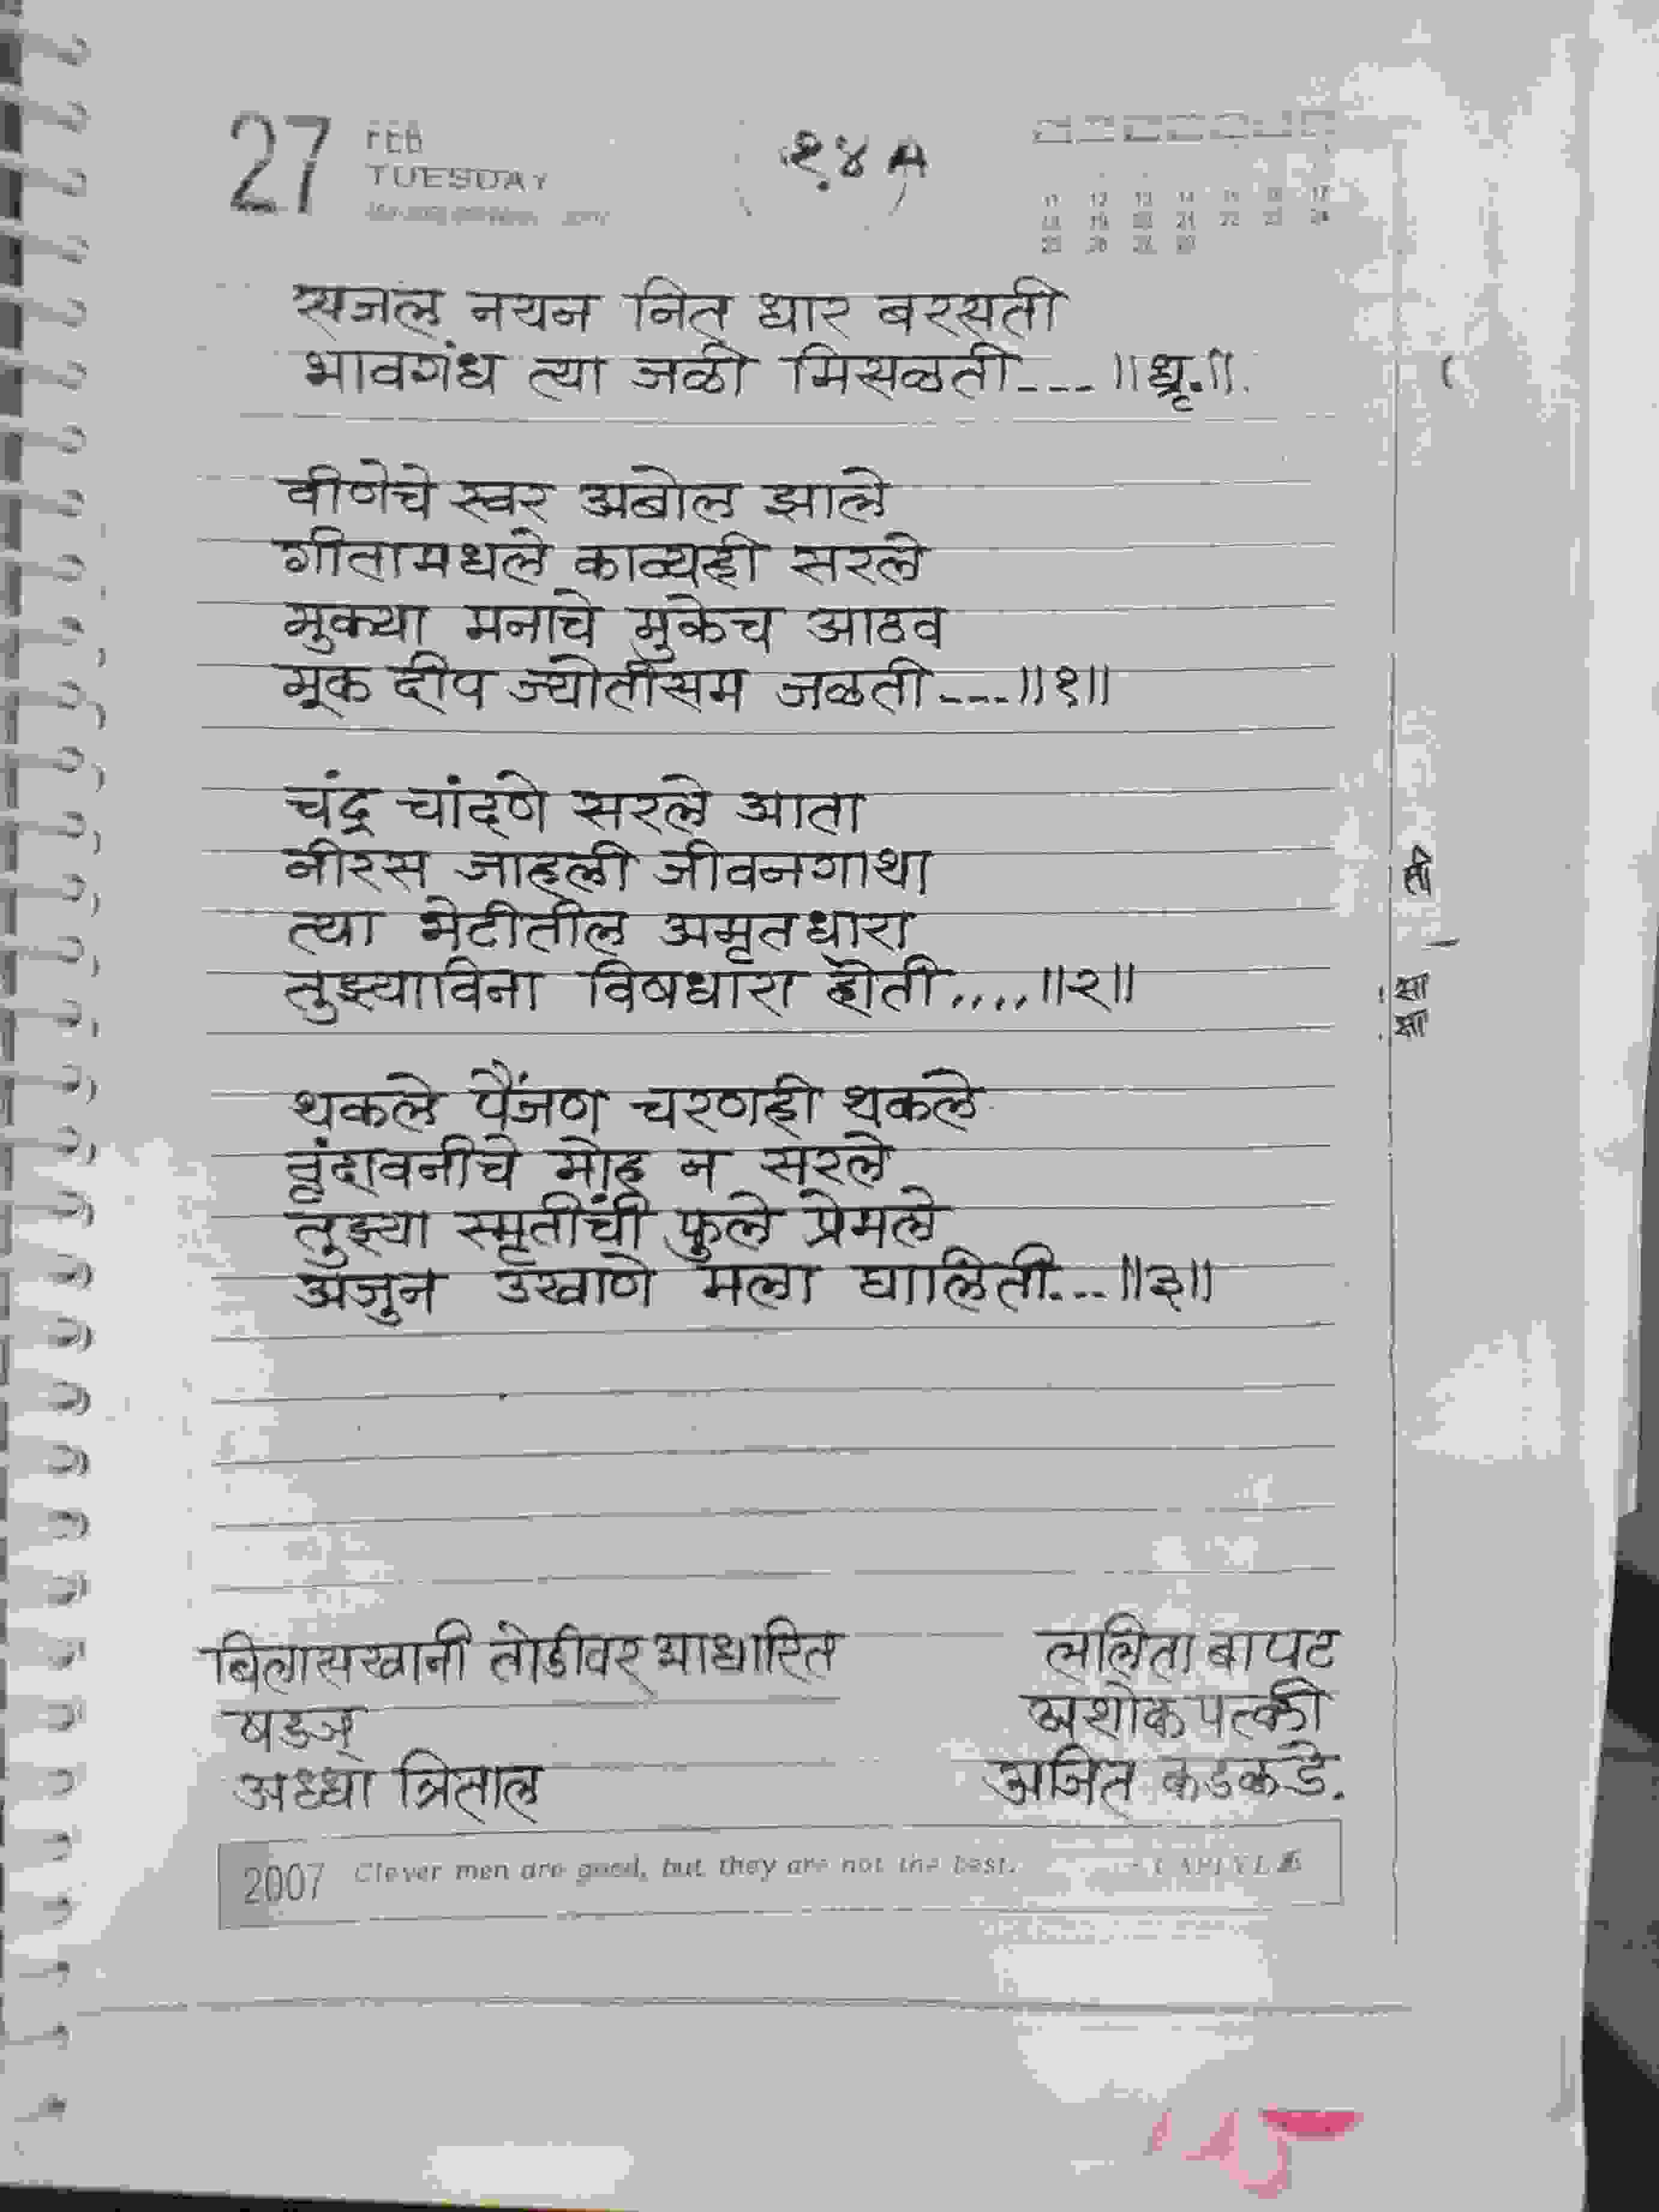 27 FEB
TUESDAY
१४ A
11 12 13 14 15 16 17
18 19 20 21 22 23 24
सजल नयन नित धार बरसती
भावगंध त्या जळी मिसळती---॥ध्रृ.॥
वीणेचे स्वर अबोल झाले
गीतामधले काव्यही सरले
मुक्या मनाचे मुकेच आठव
मूक दीप ज्योतीसम जळती---॥१॥
चंद्र चांदणे सरले आता
नीरस जाहली जीवनगाथा
त्या भेटीतील अमृतधारा
तुझ्याविना विषधारा होती....॥२॥
थकले पैंजण चरणही थकले
वृंदावनीचे मोह न सरले
तुझ्या स्मृतींची फुले प्रेमले
अजुन उखाणे मला घालिती---॥३॥
बिलासखानी तोडीवर आधारित ललिता बापट
षडज् अशोक पत्की
अध्धा त्रिताल अजित कडकडे.
2007 Clever men are good, but they are not the best.